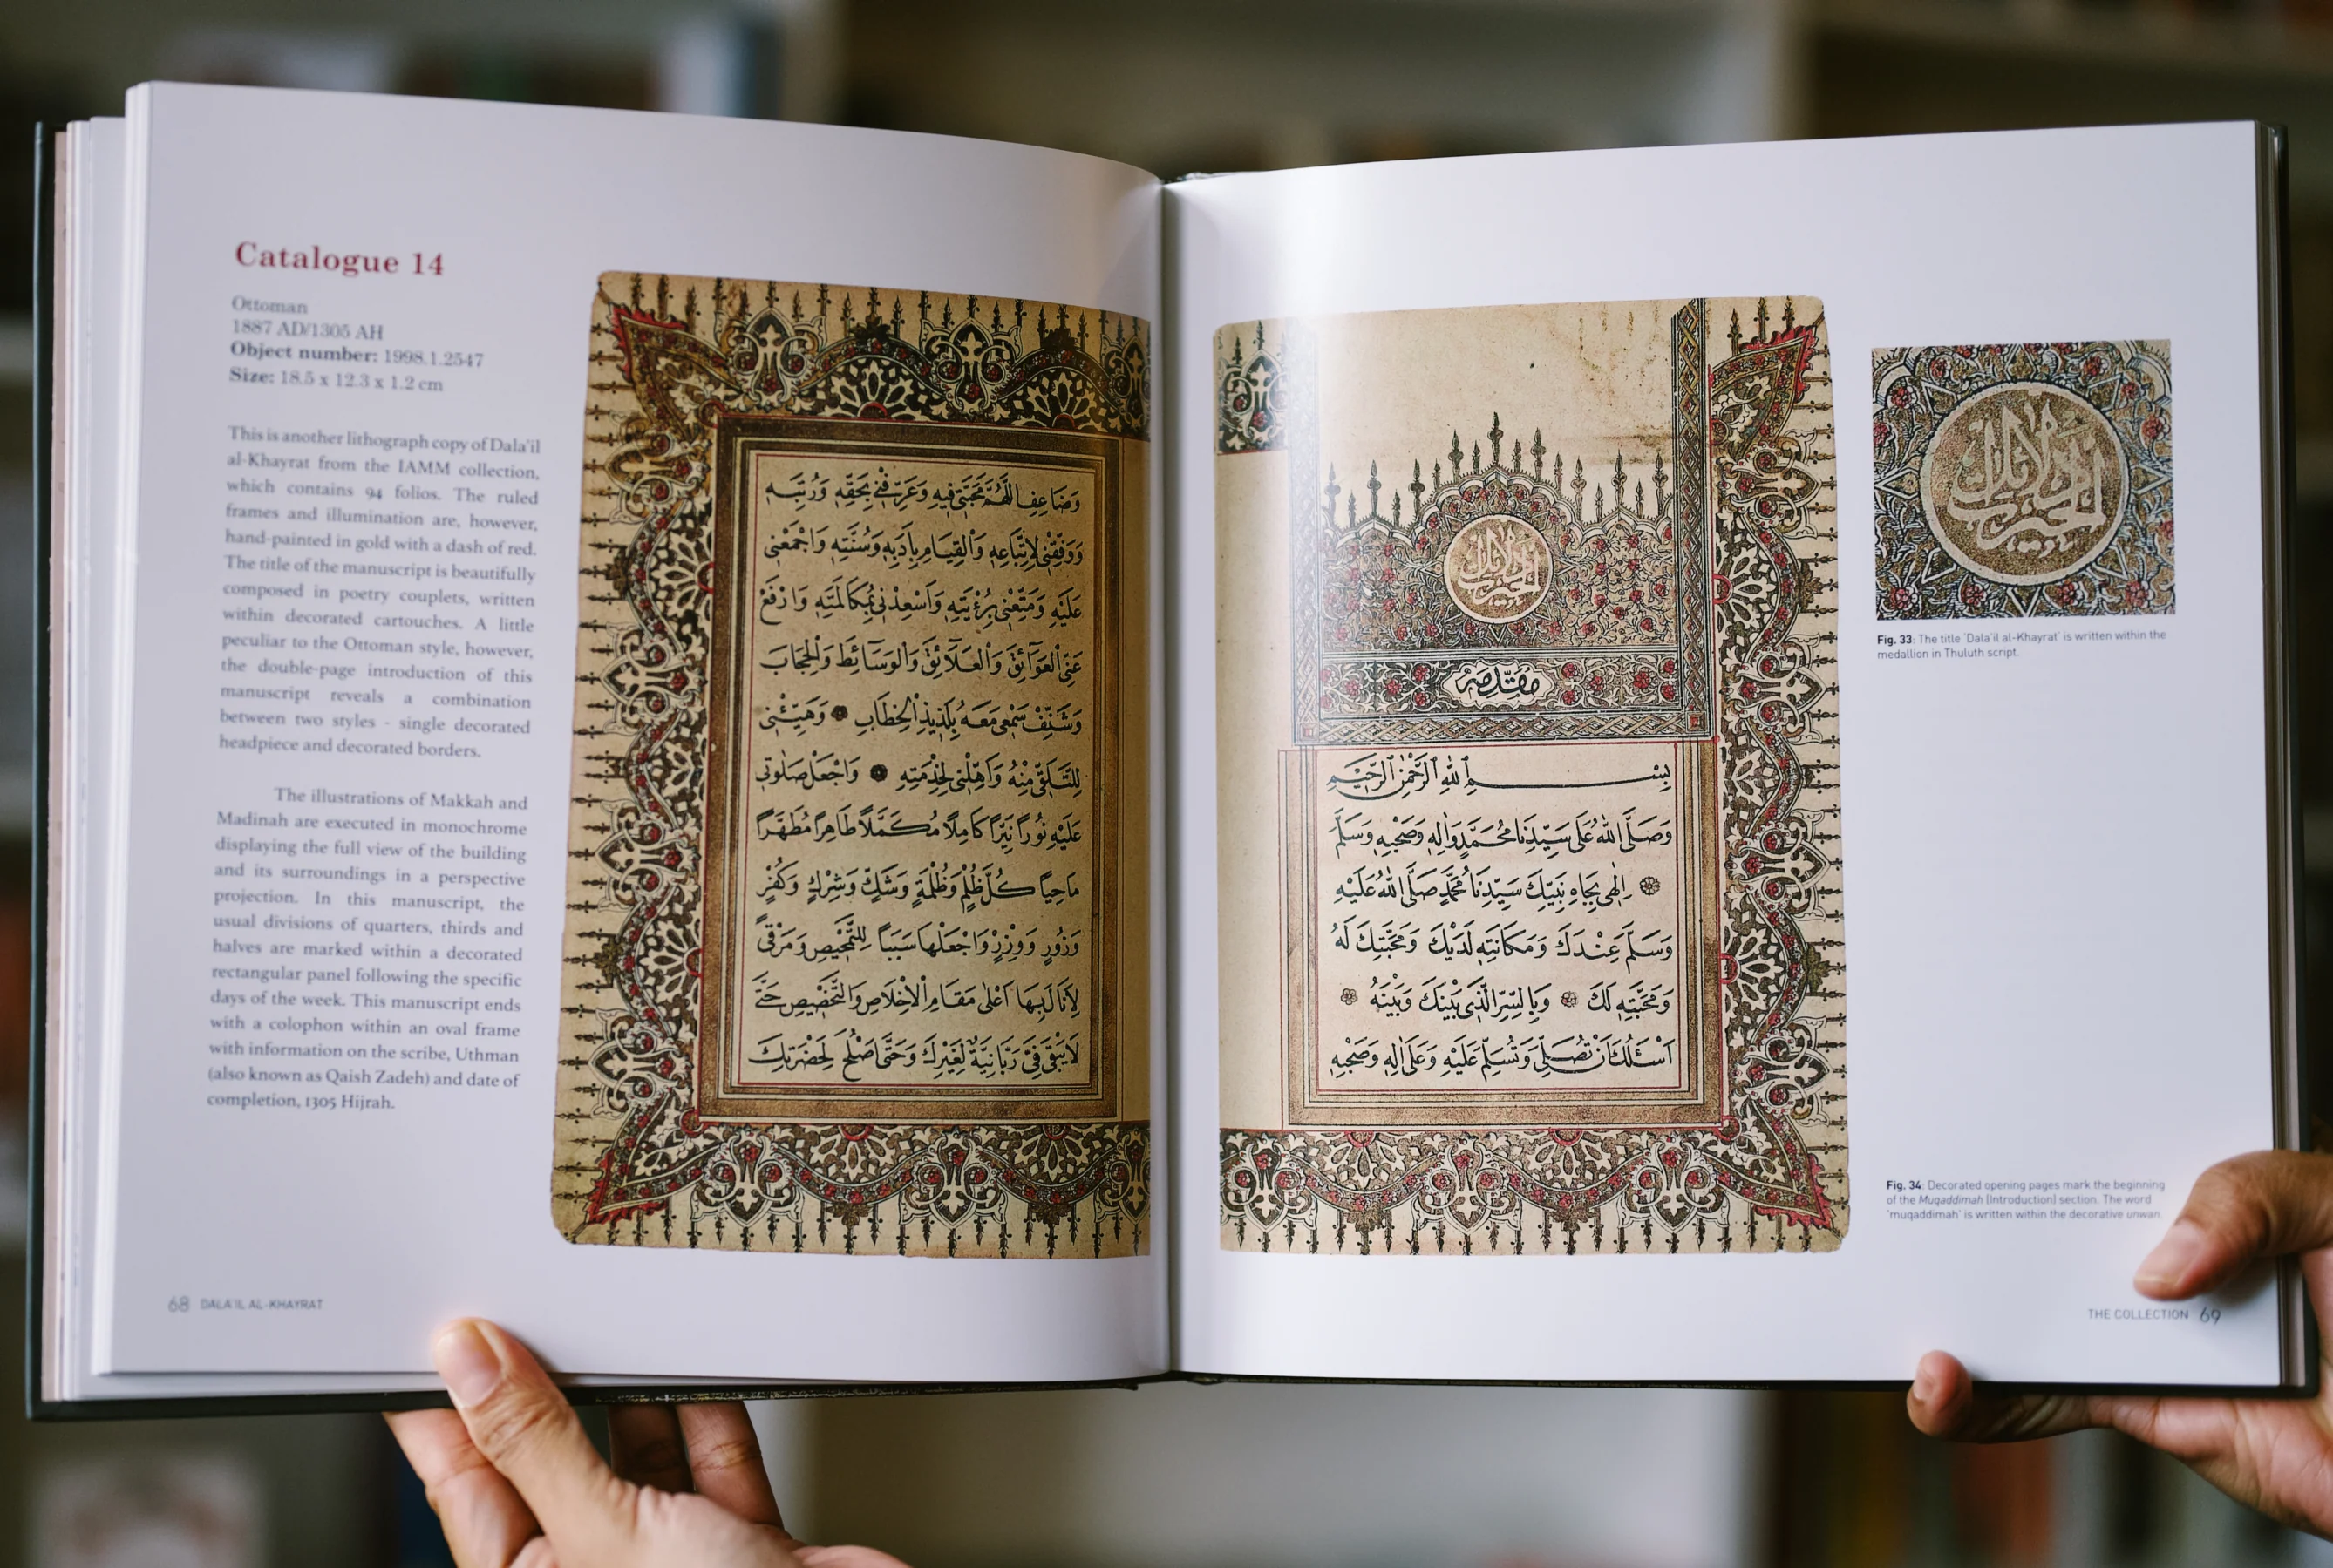 Catalogue 14
Ottoman
1887 AD/1305 AH
Object number: 1998.1.2547
Size: 18.5 x 12.3 x 1.2 cm
This is another lithograph copy of Dala'il
al-Khayrat from the IAMM collection,
which contains 94 folios. The ruled
frames and illumination are, however,
hand-painted in gold with a dash of red.
The title of the manuscript is beautifully
composed in poetry couplets, written
within decorated cartouches. A little
peculiar to the Ottoman style, however,
the double-page introduction of this
manuscript reveals a combination
between two styles - single decorated
headpiece and decorated borders.
The illustrations of Makkah and
Madinah are executed in monochrome
displaying the full view of the building
and its surroundings in a perspective
projection. In this manuscript, the
usual divisions of quarters, thirds and
halves are marked within a decorated
rectangular panel following the specific
days of the week. This manuscript ends
with a colophon within an oval frame
with information on the scribe, Uthman
(also known as Qaish Zadeh) and date of
completion, 1305 Hijrah.
68 DALA'IL AL-KHAYRAT
وَضَاعِفِ اللَّهُمَّ مَحَبَّتِي فِيهِ وَعَرِّفْنِي بِحَقِّهِ وَرُتَبِهِ
وَوَفِّقْنِي لِاتِّبَاعِهِ وَالْقِيَامِ بِأَدَبِهِ وَسُنَّتِهِ وَاجْمَعْنِي
عَلَيْهِ وَمَتِّعْنِي بِرُؤْيَتِهِ وَأَسْعِدْنِي بِمُكَالَمَتِهِ وَارْفَعْ
عَنِّي الْعَوَائِقَ وَالْعَلَائِقَ وَالْوَسَائِطَ وَالْحِجَابَ
وَشَنِّفْ سَمْعِي مَعَهُ بِلَذِيذِ الْخِطَابِ وَهَيِّئْنِي
لِلتَّلَقِّي مِنْهُ وَأَهِّلْنِي لِخِدْمَتِهِ وَاجْعَلْ صَلَوٰتِي
عَلَيْهِ نُورًا نَيِّرًا كَامِلًا مُكَمَّلًا طَاهِرًا مُطَهَّرًا
مَاحِيًا كُلَّ ظُلْمٍ وَظُلْمَةٍ وَشَكٍّ وَشِرْكٍ وَكُفْرٍ
وَزُورٍ وَوِزْرٍ وَاجْعَلْهَا سَبَبًا لِلتَّمْحِيصِ وَمَرْقًى
لِأَنَالَ بِهَا أَعْلَى مَقَامِ الْإِخْلَاصِ وَالتَّخْصِيصِ حَتَّى
لَا يَبْقَى فِيَّ رَبَّانِيَّةٌ لِغَيْرِكَ وَحَتَّى أَصْلُحَ لِحَضْرَتِكَ
دلائل الخيرات
مقدمه
بِسْمِ اللهِ الرَّحْمٰنِ الرَّحِيمِ
وَصَلَّى اللهُ عَلَى سَيِّدِنَا مُحَمَّدٍ وَاٰلِهِ وَصَحْبِهِ وَسَلَّمَ
اِلٰهِي بِجَاهِ نَبِيِّكَ سَيِّدِنَا مُحَمَّدٍ صَلَّى اللهُ عَلَيْهِ
وَسَلَّمَ عِنْدَكَ وَمَكَانَتِهِ لَدَيْكَ وَمَحَبَّتِكَ لَهُ
وَمَحَبَّتِهِ لَكَ وَبِالسِّرِّ الَّذِي بَيْنَكَ وَبَيْنَهُ
اَسْئَلُكَ اَنْ تُصَلِّيَ وَتُسَلِّمَ عَلَيْهِ وَعَلَى اٰلِهِ وَصَحْبِهِ
دلائل الخيرات
Fig. 33: The title 'Dala'il al-Khayrat' is written within the
medallion in Thuluth script.
Fig. 34: Decorated opening pages mark the beginning
of the Muqaddimah (Introduction) section. The word
'muqaddimah' is written within the decorative unwan.
THE COLLECTION 69